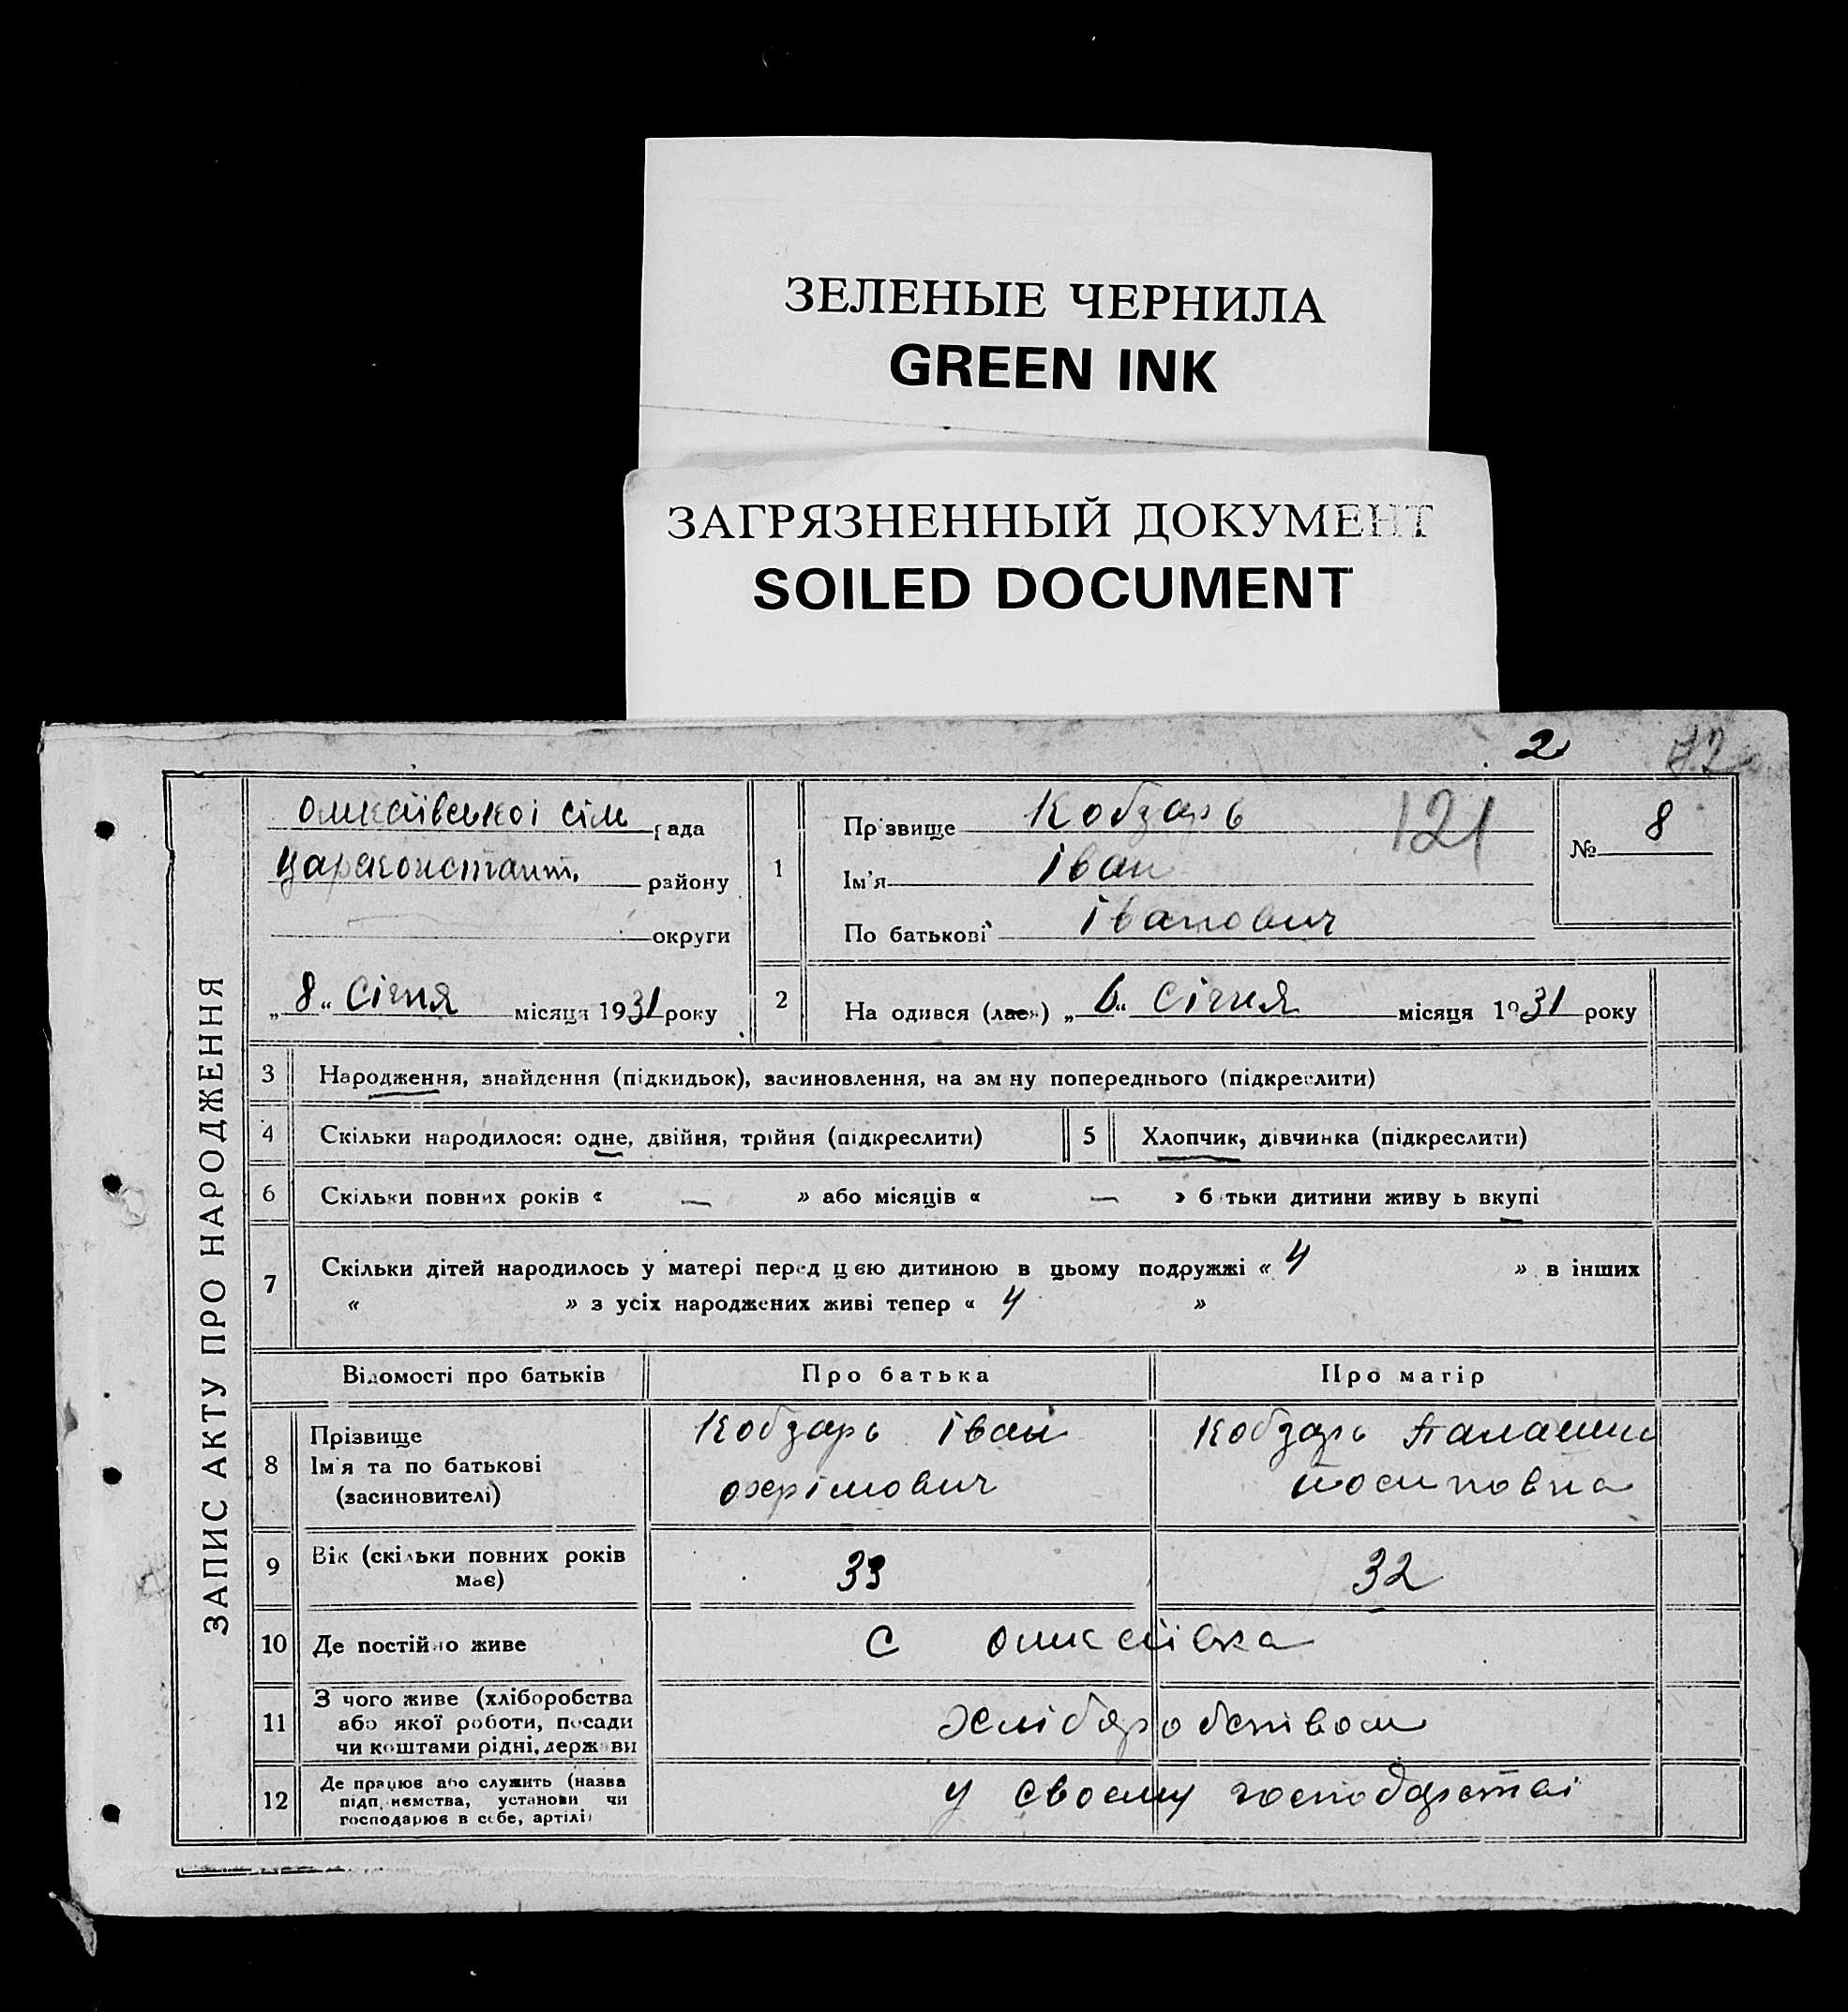 ЗЕЛЕНЫЕ ЧЕРНИЛА
GREEN INK
ЗАГРЯЗНЕННЫЙ ДОКУМЕНТ
SOILED DOCUMENT
2
ЗАПИС АКТУ ПРО НАРОДЖЕННЯ
сіль рада
Цареконстант. району
округи
„8“ Січня місяця 1931 року
1
Прізвище Кобзарь 121
Ім'я Іван
По батькові Іванович
№ 8
2
На одився (лася) „6“ Січня місяця 1931 року
3 Народження, знайдення (підкидьок), засиновлення, на зм ну попереднього (підкреслити)
4 Скільки народилося: одне, двійня, трійня (підкреслити)
5 Хлопчик, дівчинка (підкреслити)
6 Скільки повних років « — » або місяців « — » б тьки дитини живу ь вкупі
7 Скільки дітей народилось у матері перед цією дитиною в цьому подружжі « 4 » в інших
« » з усіх народжених живі тепер « 4 »
Відомості про батьків Про батька Про матір
8 Прізвище
Ім'я та по батькові
(засиновителі)
Кобзарь Іван
охрімович
Кобзарь
йосиповна
9 Вік (скільки повних років
має)
33 32
10 Де постійно живе с
11 З чого живе (хліборобства
або якої роботи, посади
чи коштами рідні, держави
хліборобством
12 Де працює або служить (назва
підп иємства, установи чи
господарює в себе, артілі)
у своему господарстві